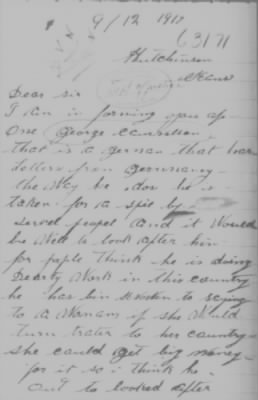 9/12 1917
63171
Hutchinson
Kans
Dear sir
I am in forming you of
One George
that is a german that
letters from Germany
the Way he dos he is
taken for a spie by
servel peopel and it Would
be Well to look after him
for pople think he is doing
Dearty Work in this country
he has bin to
to a Womans if she Would
turn trater to her country
she could get big money
for it so i think he
out to looked after